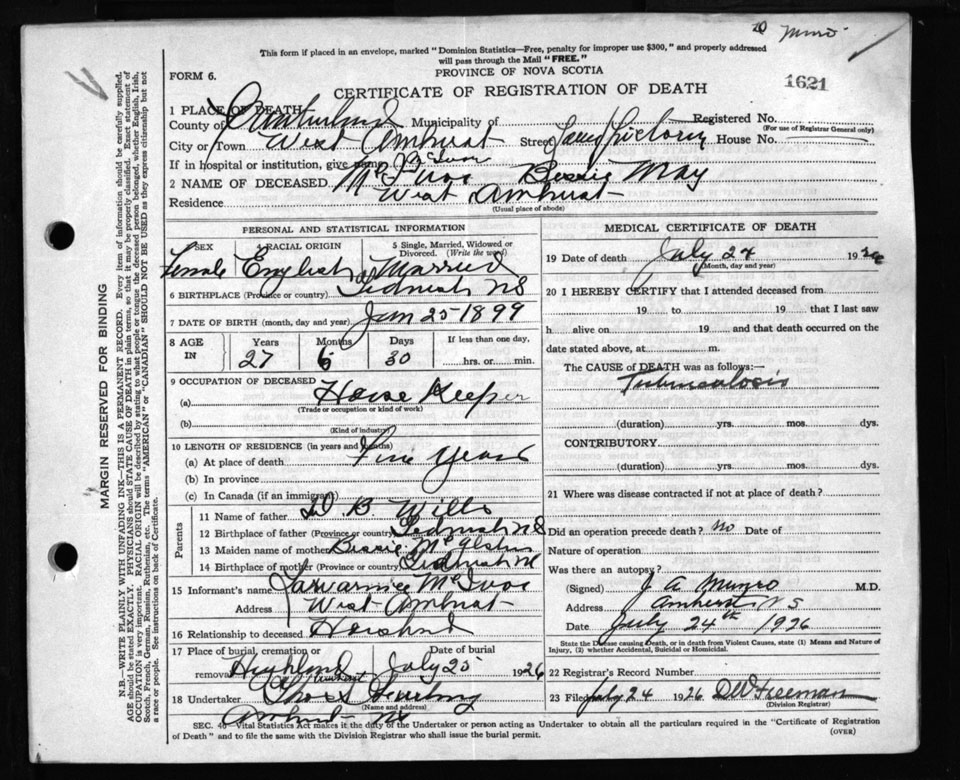 Munro
This form if placed in an envelope, marked "Dominion Statistics—Free, penalty for improper use $300," and properly addressed
will pass through the Mail "FREE."
FORM 6.
PROVINCE OF NOVA SCOTIA
1621
CERTIFICATE OF REGISTRATION OF DEATH
1 PLACE OF DEATH
County of Municipality of Registered No.
(For use of Registrar General only)
City or Town West Amherst Street House No.
If in hospital or institution, give name McIvor
2 NAME OF DECEASED Bessie May
Residence West Amherst
(Usual place of abode)
PERSONAL AND STATISTICAL INFORMATION
3 SEX 4 RACIAL ORIGIN 5 Single, Married, Widowed or Divorced. (Write the word)
Female English Married
6 BIRTHPLACE (Province or country) Tidnish NS
7 DATE OF BIRTH (month, day and year) Jan 25 1899
8 AGE IN Years Months Days If less than one day,
27 30 hrs. or min.
9 OCCUPATION OF DECEASED
(a) House Keeper
(Trade or occupation or kind of work)
(b)
(Kind of industry)
10 LENGTH OF RESIDENCE (in years and months)
(a) At place of death Years
(b) In province
(c) In Canada (if an immigrant)
Parents
11 Name of father B Wills
12 Birthplace of father (Province or country) Tidnish NS
13 Maiden name of mother Bessie
14 Birthplace of mother (Province or country) Tidnish
15 Informant's name McIvor
Address West Amherst
16 Relationship to deceased Husband
17 Place of burial, cremation or removal Date of burial
Highland Amherst July 25 1926
18 Undertaker
(Name and address)
Amherst NS
MEDICAL CERTIFICATE OF DEATH
19 Date of death July 24 1926
(Month, day and year)
20 I HEREBY CERTIFY that I attended deceased from
19 to 19 that I last saw
h alive on 19 and that death occurred on the
date stated above, at m.
The CAUSE of DEATH was as follows:—
Tuberculosis
(duration) yrs. mos. dys.
CONTRIBUTORY.
(duration) yrs. mos. dys.
21 Where was disease contracted if not at place of death?
Did an operation precede death? No Date of
Nature of operation
Was there an autopsy?
(Signed) J A Munro M.D.
Address Amherst NS
Date July 24th 1926
State the Disease causing Death, or in death from Violent Causes, state (1) Means and Nature of
Injury, (2) whether Accidental, Suicidal or Homicidal.
22 Registrar's Record Number
23 Filed July 24 1926 Freeman
(Division Registrar)
SEC. 40 Vital Statistics Act makes it the duty of the Undertaker or person acting as Undertaker to obtain all the particulars required in the "Certificate of Registration
of Death" and to file the same with the Division Registrar who shall issue the burial permit.
(OVER)
MARGIN RESERVED FOR BINDING
N.B.—WRITE PLAINLY WITH UNFADING INK—THIS IS A PERMANENT RECORD. Every item of information should be carefully supplied.
AGE should be stated EXACTLY. PHYSICIANS should STATE CAUSE OF DEATH in plain terms, so that it may be properly classified. Exact statement of
OCCUPATION is very important. RACIAL ORIGIN will be described by stating to what people or tongue the deceased person belonged, whether English, Irish,
Scotch, French, German, Russian, Ruthenian, etc. The terms "AMERICAN" or "CANADIAN" SHOULD NOT BE USED as they express citizenship but not
a race or people. See instructions on back of Certificate.